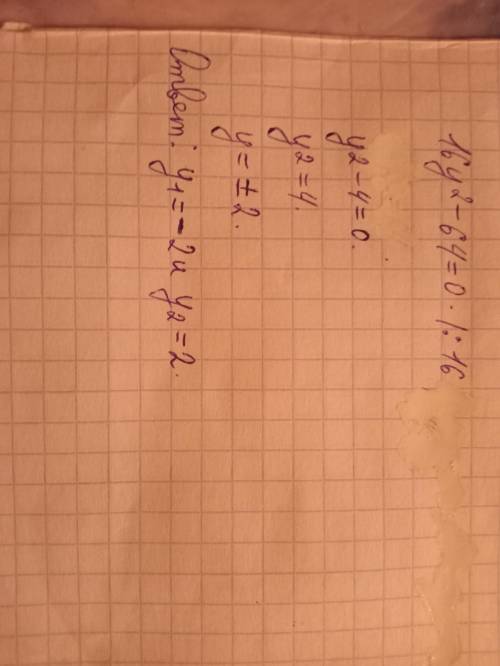 16y² - 64 = 0. |:16
y2 - 4 = 0.
y2 = 4.
y = ± 2.
Ответ: y1 = - 2 и y2 = 2.